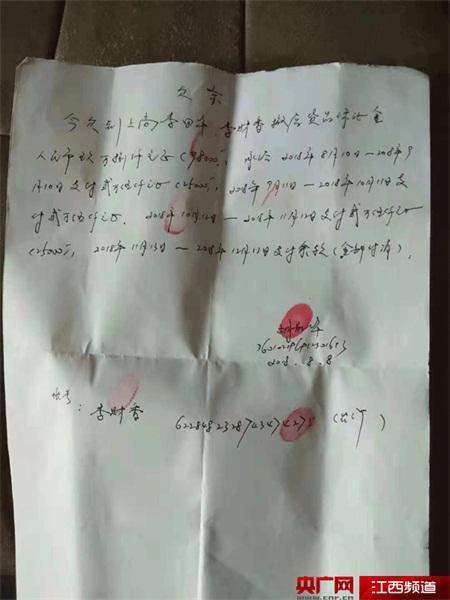 欠条
今欠到上高李 李财香 货品保证金
人民币玖万捌仟元正(98000), 承诺2018年8月10日—2018年9
月10日支付贰万伍仟元正(25000), 2018年9月11日—2018年10月11日支
付贰万伍仟元正. 2018年10月12日—2018年11月12日支付贰万伍仟元正
(25000), 2018年11月13日—2018年12月12日支付余款(全部付清).
2018.8.8
账号: 李财香
央广网
www.cnr.cn
江西频道